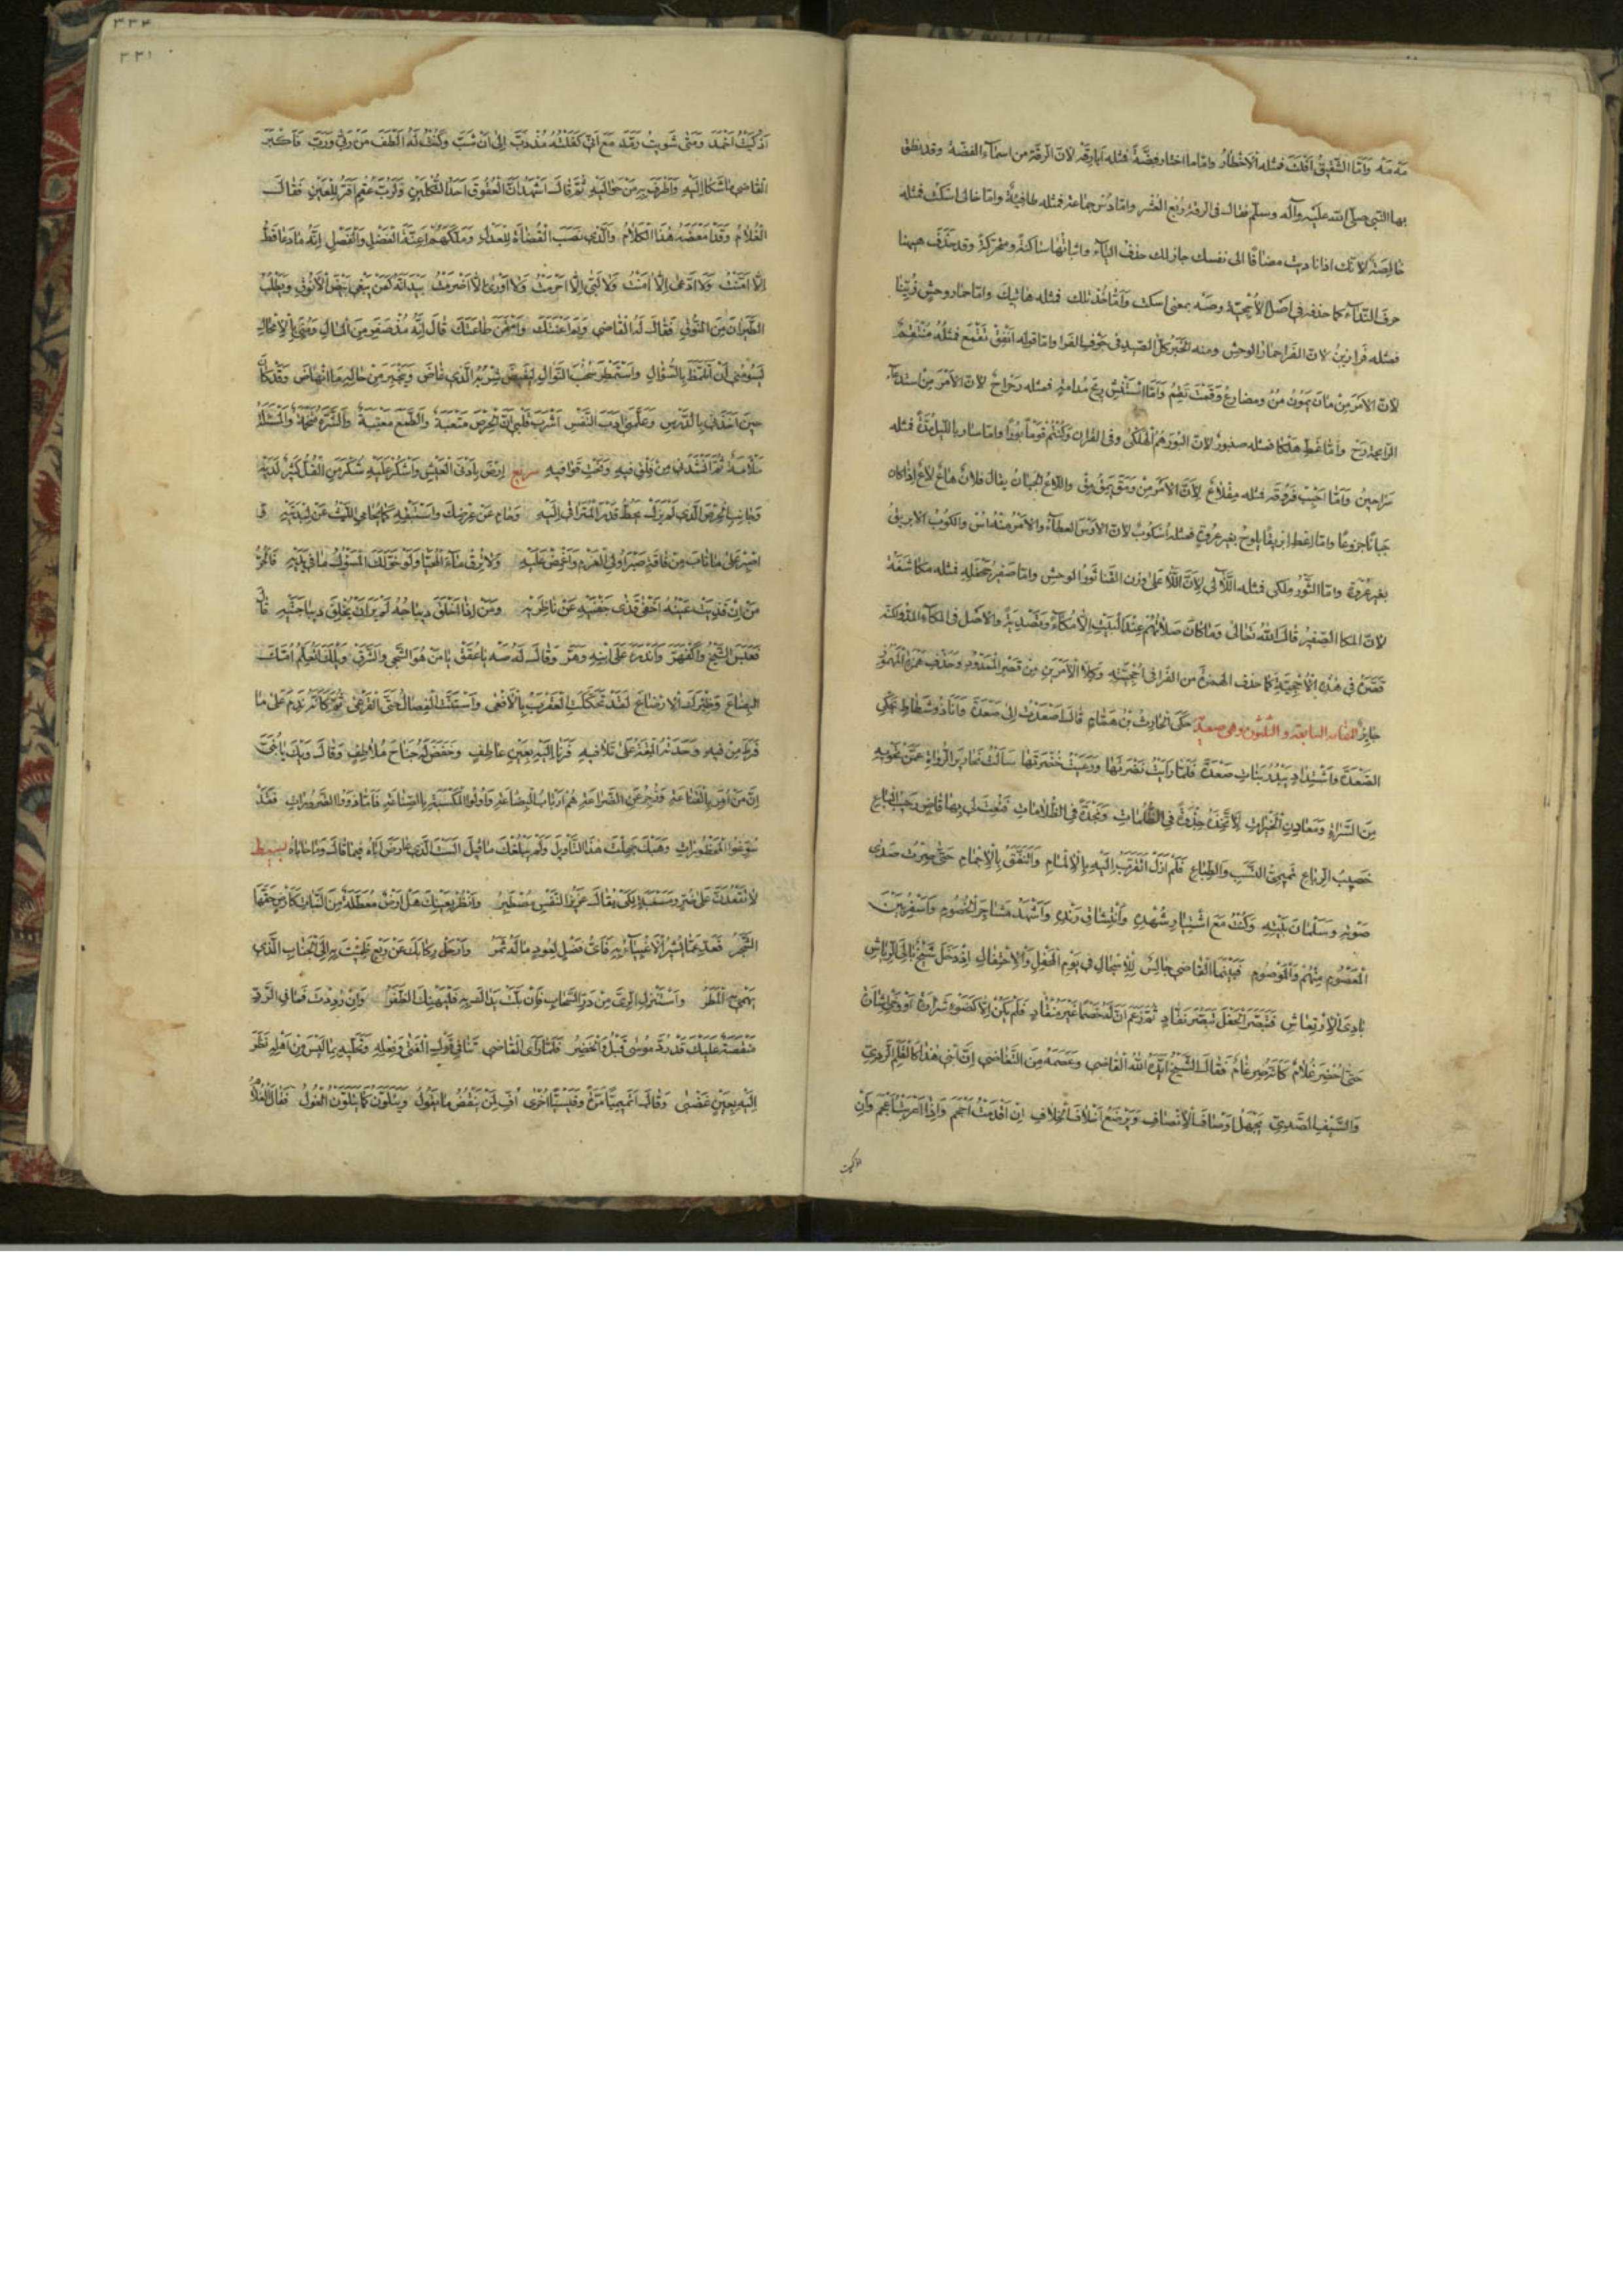 مه مه وَامّا الشَّقِيقُ اَفْلَتَ فمثله اَلاَخْطَارُ وامّا ما اختار فِضَّةً فمثله اَبا رِقَّةٍ لانّ الرقّة من اسمآء الفضّة وقد نطق
بها النّبي صلّى الله عليه وآله وسلّم فقال في الرقة رُبع العُشْرِ وامّا دُسْ جماعةً فمثله طافِيَةٌ وامّا خالى اسكت فمثله
خالِصَة لانّك اذا ناديت مضافًا الى نفسك جاز لك حذف اليآء واثباتها ساكنةً ومتحركةً وقد حَذَفَ ههنا
حرف النّدآء كما حذفه في اصل الاُحْجِيّة وصَهْ بمعنى اسكت وَامّا خُذْ تلك فمثله هاتِيكَ وامّا حمار وحشٍ زُيِّنا
فمثله فَرازِينُ لانّ الفَرا حمار الوحش ومنه الخبر كلّ الصّيد في جَوْفِ الفَرا وامّا قوله اَنْفِقْ تَقْمَعْ فمثله مُنْتَقِمٌ
لانّ الامر مِنْ مانَ يَمُونُ مُنْ ومضارع وَقَمْتَ تَقِمُ وَامّا اِسْتَنْشِ رِيحَ مُدامَةٍ فمثله رَحْراحٌ لانّ الاَمْرَ مِنْ استدعآء
الرّايحة رَحْ وامّا غَطِّ هَلْكا فمثله صنبورٌ لانّ البُورَ هُمُ الهَلْكى وفى القرآن وَكُنْتُمْ قَوْمًا بُورًا وامّا سار بالليل مُدّةً فمثله
سَراحِينُ وَامّا اَحْبِبْ فَرُوقَه فمثله مِقْلاعٌ لانَّ الاَمرَ مِنْ وَمَقَ يَمِقُ مِقْ واللاّعُ الجبان يقال فلانٌ هاعٌ لاعٌ اِذا كان
جبانًا جزوعًا وامّا اِعْطِ ابْرِيقًا يلوحُ بغير عُروةٍ فمثله اُسْكُوبٌ لانّ الاَوْسَ العطآءُ والامر منه اُسْ والكُوبُ الابريقُ
بغير عُرْوَةٍ وامّا الثَّوْرُ مِلكى فمثله اللّآلى لاَنَّ اللَّأى على وزن القَنا ثور الوحش وامّا صَفِيرُ جَحْفَلَةٍ فمثله مُكاشَفَةٌ
لانّ المكا الصّفيرُ قالَ الله تعالى وَما كانَ صَلاتُهُمْ عِنْدَ البَيْتِ اِلاّ مُكآءً وَتَصْدِيَةً والاَصل في المكآء المدّ ولكنّه
قَصَرَهُ في هذه الاُحْجِيَّةِ كما حذف الهمزة من الفَرا في اُحْجِيّتِهِ وَكِلا الاَمْرَيْنِ مِنْ قَصْرِ المَمْدُودِ وَحَذْفِ هَمْزَةِ المَهْمُوزِ
جايزٌ المقامة السابعة و الثلثون وهى صعديّة حَكَى الحارِثُ بْنُ هَمّامٍ قالَ اَصْعَدْتُ اِلى صَعْدَةَ وَاَنَا ذُو شَطاطٍ يَحْكِى
الصَّعْدَةَ وَاشْتِدادٍ يَبْدُرُ بَناتِ صَعْدَةَ فَلَمّا رَاَيْتُ نَضْرَتَها وَرَعَيْتُ خُضْرَتَها سَاَلْتُ نَحارِيرَ الرُّواةِ عَمَّنْ تَحْوِيهِ
مِنَ السَّراةِ وَمَعادِنِ الخَيْراتِ لاَتَّخِذَهُ جِذْوَةً فِي الظُّلُماتِ وَنَجْدَةً فِي الظُّلاماتِ فَنُعِتَ لِي بِها قاضٍ رَحِيبُ الباعِ
خَصِيبُ الرِّباعِ تَمِيمِيُّ النَّسَبِ وَالطِّباعِ فَلَمْ اَزَلْ اَتَقَرَّبُ اِلَيْهِ بِالاِلْمامِ وَاَتَنَفَّقُ بِالاِجْمامِ حَتّى صِرْتُ صَدى
صَوْتِهِ وَسَلْمانَ بَيْتِهِ وَكُنْتُ مَعَ اشْتِيارِ شُهْدِهِ وَانْتِشاقِ رَنْدِهِ وَاَشْهَدُ مَشاجِرَ الخُصُومِ وَاَسْفِرُ بَيْنَ
المَعْصُومِ مِنْهُمْ وَالمَوْصُومِ فَبَيْنَمَا القاضِي جالِسٌ لِلاِسْجالِ فِي يَوْمِ المَحْفِلِ وَالاِحْتِفالِ اِذْ دَخَلَ شَيْخٌ بالِى الرِّياشِ
بادِيَ الاِرْتِعاشِ فَتَبَصَّرَ الحَفْلَ تَبَصُّرَ نَقّادٍ ثُمَّ زَعَمَ اَنَّ لَهُ خَصْمًا غَيْرَ مُنْقادٍ فَلَمْ يَكُنْ اِلاّ كَضَوْءِ شَرارَةٍ اَوْ وَحْيِ اِشارَةٍ
حَتّى اُحْضِرَ غُلامٌ كَاَنَّهُ ضِرْغامٌ فَقالَ الشَّيْخُ اَيَّدَ اللهُ القاضِي وَعَصَمَهُ مِنَ التَّغاضِي اِنَّ ابْنِي هٰذا كَالقَلَمِ الرَّدِيِّ
وَالسَّيْفِ الصَّدِيِّ يَجْهَلُ اَوْصافَ الاِنْصافِ وَيَرْضَعُ اَخْلافَ الخِلافِ اِنْ اَقْدَمْتُ اَحْجَمَ وَاِذا اَعْرَبْتُ اَعْجَمَ وَاِنْ
اذكيت
٣٣٤
٣٣١
اَذْكَيْتُ اَخْمَدَ وَمَتى شَوَيْتُ رَمَّدَ مَعَ اَنِّي كَفَلْتُهُ مُذْ دَبَّ اِلى اَنْ شَبَّ وَكُنْتُ لَهُ اَلْطَفَ مَنْ رَبّى وَرَبَّ فَاَكْبَرَ
القاضِي ما شَكا اِلَيْهِ وَاَطْرَفَ بِهِ مَنْ حَوالَيْهِ ثُمَّ قالَ اَشْهَدُ اَنَّ العُقُوقَ اَحَدُ الثُّكْلَيْنِ وَلَرُبَّ عُقْمٍ اَقَرُّ لِلْعَيْنِ فَقالَ
الغُلامُ وَقَدْ اَمْعَضَهُ هٰذَا الكَلامُ وَالَّذِي نَصَبَ القُضاةَ لِلْعَدْلِ وَمَلَّكَهُمْ اَعِنَّةَ الفَضْلِ وَالفَصْلِ اِنَّهُ ما دَعا قَطُّ
اِلاّ اَمَّنْتُ وَلاَ ادَّعى اِلاّ اٰمَنْتُ وَلا لَبّى اِلاّ اَحْرَمْتُ وَلا اَوْرى اِلاّ اَضْرَمْتُ بَيْدَ اَنَّهُ كَمَنْ يَبْغِي بَيْضَ الاَنُوقِ وَيَطْلُبُ
الطَّيَرانَ مِنَ النُّوقِ فَقالَ لَهُ القاضِي وَبِمَ اَعْنَتَكَ وَامْتَحَنَ طاعَتَكَ قالَ اِنَّهُ مُذْ صَفِرَ مِنَ المالِ وَمُنِيَ بِالاِمْحالِ
يَسُومُنِي اَنْ اَتَلَمَّظَ بِالسُّؤالِ وَاسْتَمْطِرَ سُحْبَ النَّوالِ لِيَفِيضَ شِرْبُهُ الَّذِي غاضَ وَيَنْجَبِرَ مِنْ حالِهِ مَا انْهاضَ وَقَدْ كانَ
حِينَ اَخَذَنِي بِالدَّرْسِ وَعَلَّمَنِي اَدَبَ النَّفْسِ اَشْرَبَ قَلْبِي اَنَّ الحِرْصَ مَتْعَبَةٌ وَالطَّمَعَ مَعْتَبَةٌ وَالشَّرَهَ مَتْخَمَةٌ وَالمَسْئَلَةَ
مَلاَمَةٌ ثُمَّ اَنْشَدَنِي مِنْ فِلْقِ فِيهِ وَنَحْتِ قَوافِيهِ سريع اِرْضَ بِاَدْنَى العَيْشِ وَاشْكُرْ عَلَيْهِ شُكْرَ مَنِ القُلُّ كَثِيرٌ لَدَيْهِ
وَجانِبِ الحِرْصَ الَّذِي لَمْ يَزَلْ يَحُطُّ قَدْرَ المُتَراقِى اِلَيْهِ وَحامِ عَنْ عِرْضِكَ وَاسْتَبْقِهِ كَما يُحامِى اللَّيْثُ عَنْ لِبْدَتَيْهِ وَ
اصْبِرْ عَلى ما نابَ مِنْ فاقَةٍ صَبْرَ اُولِى العَزْمِ وَاَغْمِضْ عَلَيْهِ وَلا تُرِقْ مآءَ المُحَيّا وَلَوْ خَوَّلَكَ المَسْؤُلُ ما فِى يَدَيْهِ فَالحُرُّ
مَنْ اِنْ قَذِيَتْ عَيْنُهُ اَخْفى قَذى جَفْنَيْهِ عَنْ ناظِرَيْهِ وَمَنْ اِذا اَخْلَقَ دِيباجُهُ لَمْ يَرَ اَنْ يُخْلِقَ دِيباجَتَيْهِ قالَ
فَعَبَسَ الشَّيْخُ وَاكْفَهَرَّ وَانْدَرَءَ عَلَى ابْنِهِ وَهَرَّ وَقالَ لَهُ صَهْ يا عُقَقُ يا مَنْ هُوَ الشَّجى وَالشَّرَقُ وَيْكَ اَتُعَلِّمُ اُمَّكَ
البِضاعَ وَظِئْرَكَ الاِرْضاعَ لَقَدْ تَحَكَّكَتِ العَقْرَبُ بِالاَفْعى وَاسْتَنَّتِ الفِصالُ حَتَّى القَرْعى ثُمَّ كَاَنَّهُ نَدِمَ عَلى ما
فَرَطَ مِنْ فِيهِ وَحَدَتْهُ المِقَةُ عَلى تَلافِيهِ فَرَنا اِلَيْهِ بِعَيْنِ عاطِفٍ وَخَفَضَ لَهُ جَناحَ مُلاطِفٍ وَقالَ وَيْكَ يا بُنَيَّ
اِنَّ مَنْ اُمِرَ بِالقَناعَةِ وَزُجِرَ عَنِ الضَّراعَةِ هُمْ اَرْبابُ البِضاعَةِ وَاُولُو المَكْسَبَةِ بِالصِّناعَةِ فَاَمّا ذَوُو الضَّرُوراتِ فَقَدْ
سُوِّغُوا المَحْظُوراتِ وَهَبْكَ جَهِلْتَ هٰذَا التَّاْوِيلَ وَلَمْ يَبْلُغْكَ ما قِيلَ اَلَسْتَ الَّذِي عارَضَ اَباهُ فِيما قالَ وَما حاباهُ بسيط
لا تَقْعُدَنَّ عَلى ضُرٍّ وَمَسْغَبَةٍ لِكَيْ يُقالَ عَزِيزُ النَّفْسِ مُصْطَبِرُ وَانْظُرْ بِعَيْنِكَ هَلْ اَرْضٌ مُعَطَّلَةٌ مِنَ النَّباتِ كَاَرْضٍ حَفَّها
الشَّجَرُ فَعَدِّ عَمّا تُشِيرُ الاَغْبِيآءُ بِهِ فَاَىُّ فَضْلٍ لِعُودٍ ما لَهُ ثَمَرُ وَارْحَلْ رِكابَكَ عَنْ رَبْعٍ ظَمِئْتَ بِهِ اِلَى الجَنابِ الَّذِي
يَهْمِي المَطَرُ وَاسْتَنْزِلِ الرِّيَّ مِنْ دَرِّ السَّحابِ فَاِنْ بُلَّتْ يَداكَ بِهِ فَلْيَهْنِكَ الظَّفَرُ وَاِنْ رُدِدْتَ فَما فِي الرَّدِّ
مَنْقَصَةٌ عَلَيْكَ قَدْ رُدَّ مُوسى قَبْلُ وَالخَضِرُ فَلَمّا رَاَى القاضِي تَنافِيَ قَوْلِ الفَتى وَفِعْلِهِ وَتَحَلِّيهِ بِما لَيْسَ مِنْ اَهْلِهِ نَظَرَ
اِلَيْهِ بِعَيْنِ غَضْبى وَقالَ اَتَمِيمِيًّا مَرَّةً وَقَيْسِيًّا اُخْرى اُفٍّ لِمَنْ يَنْقُضُ ما يَقُولُ وَيَتَلَوَّنُ كَما يَتَلَوَّنُ الغُولُ فَقالَ الغُلامُ